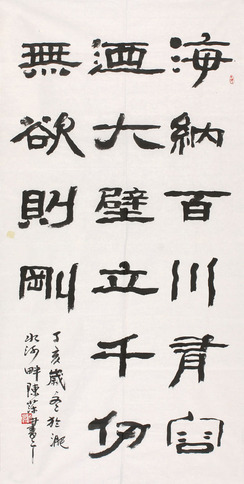 海納百川有容
迺大壁立千仞
無欲則剛
丁亥歲冬於淝
水河畔陳書